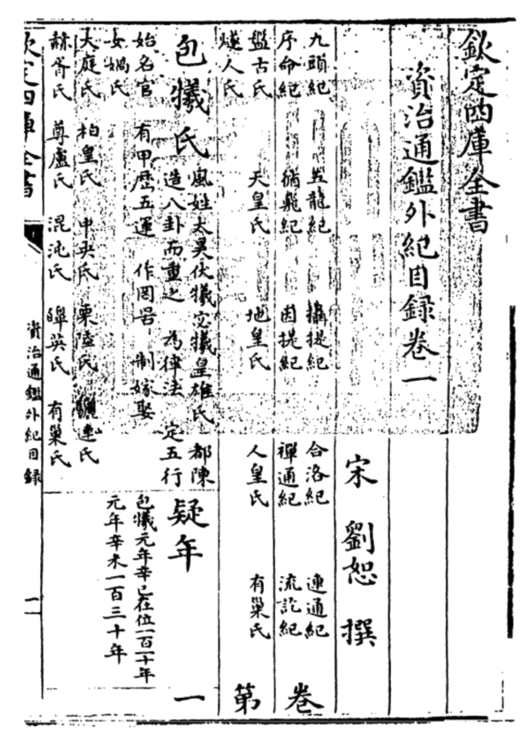 欽定四庫全書
資治通鑑外紀目録卷一
宋 劉恕 撰
九頭紀 五龍紀 攝提紀 合洛紀 連通紀
序命紀 循飛紀 因提紀 禪通紀 流訖紀
盤古氏 天皇氏 地皇氏 人皇氏 有巢氏
燧人氏
卷第一
包犧氏
風姓太昊伏犧宓犧皇雄氏 都陳
造八卦而重之 為律法 定五行
疑年
始名官 有甲歴五運 作罔罟 制嫁娶
包犧元年辛巳在位一百一十年
女媧氏
元年辛未一百三十年
大庭氏 柏皇氏 中央氏 栗陸氏 驪連氏
赫胥氏 尊盧氏 混沌氏 皡英氏 有巢氏
欽定四庫全書
資治通鑑外紀目録
一